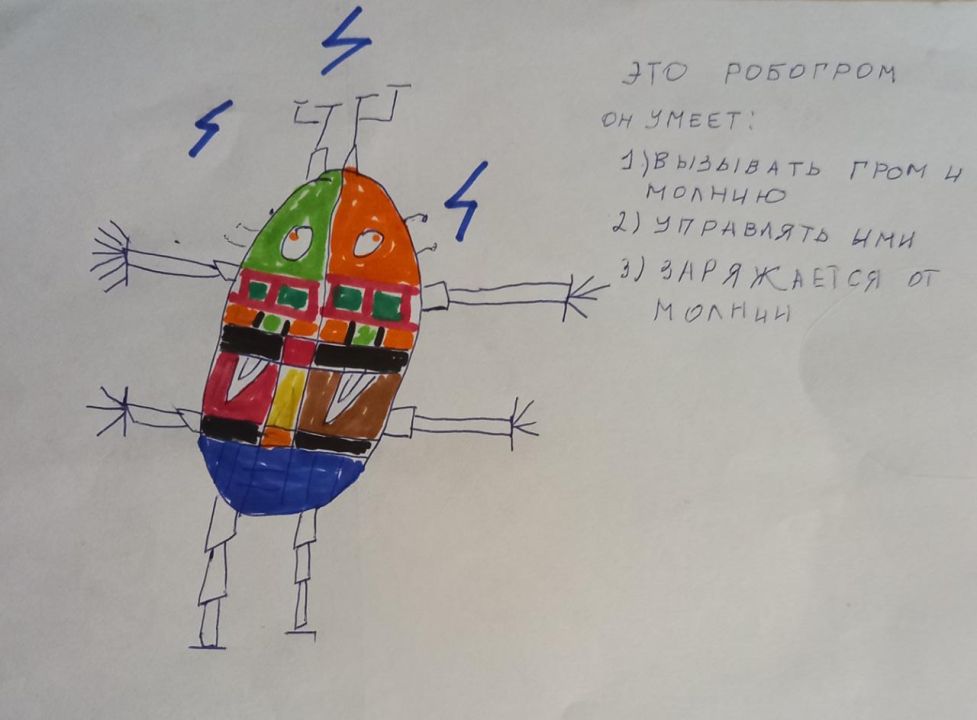 ЭТО РОБОГРОМ
ОН УМЕЕТ:
1) ВЫЗЫВАТЬ ГРОМ И
МОЛНИЮ
2) УПРАВЛЯТЬ ИМИ
3) ЗАРЯЖАЕТСЯ ОТ
МОЛНИИ